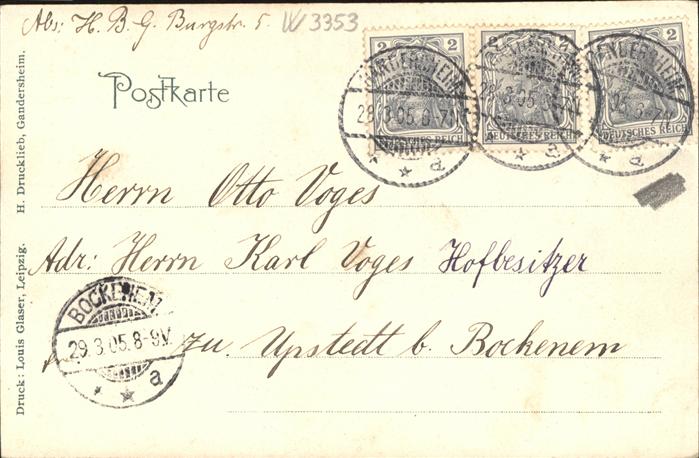 Abs: H. B. G. Burgstr. 5. W 3353
Postkarte
2 2 2 2 2
DEUTSCHES REICH DEUTSCHES REICH DEUTSCHES REICH
GANDERSHEIM
28.3.05.6-7N
a
Herrn Otto Voges
Adr: Herrn Karl Voges Hofbesitzer
zu Upstedt b. Bockenem
BOCKENEM
29.3.05.8-9V.
a
H. Drucklieb, Gandersheim.
Druck: Louis Glaser, Leipzig.